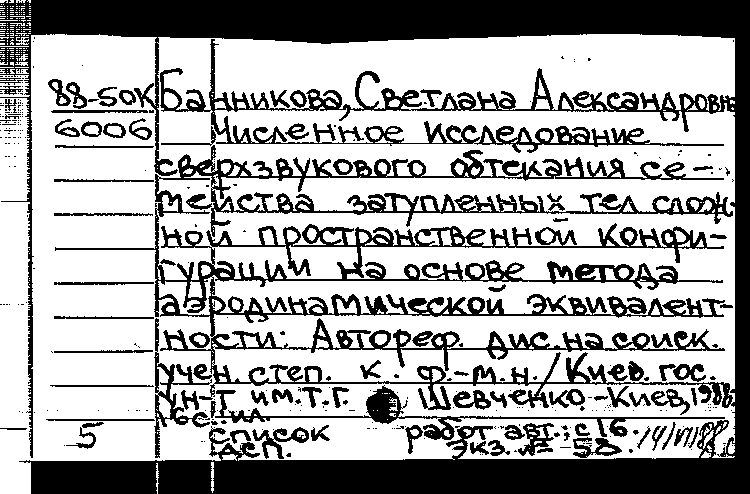 88-50К Банникова, Светлана Александровна
6006 Численное исследование
сверхзвукового обтекания се-
мейства затупленных тел слож-
ной пространственной конфи-
гурации на основе метода
аэродинамической эквивалент-
ности: Автореф. дис. на соиск.
учен. степ. к. ф.-м.н. / Киев. гос.
ун-т им. Т.Г. Шевченко. - Киев, 1988.
16с.: ил.
5 Список работ авт.: с 16. 14/VI 88
ДСП. Экз. № 58